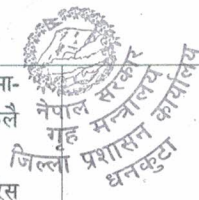 मा-
लै
नेपाल सरकार
गृह मन्त्रालय
जिल्ला प्रशासन कार्यालय
धनकुटा